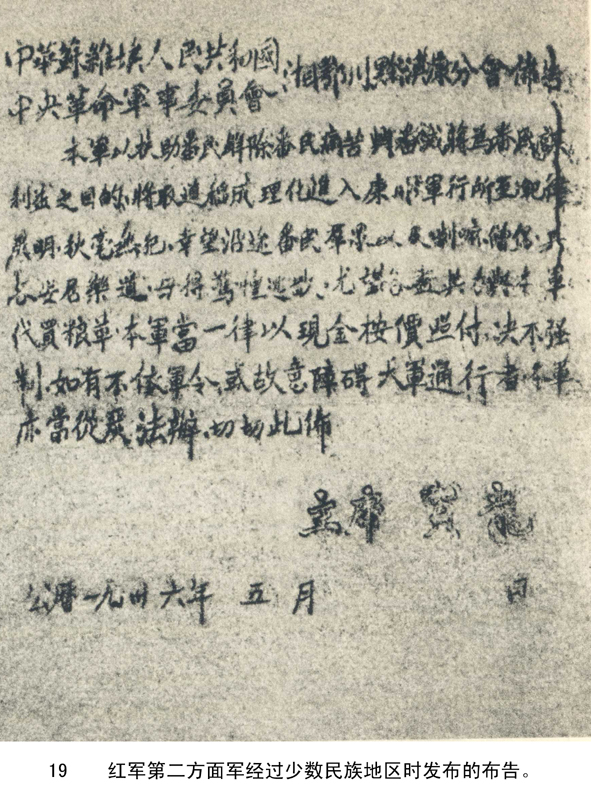 中華蘇維埃人民共和國
中央革命軍事委員會 湘鄂川黔滇康分會佈告
本軍以扶助番民解除番民痛苦興番滅蔣爲番民謀
利益之目的,將取道稻成理化進入康川,軍行所至紀律
嚴明,秋毫無犯,幸望沿途番民群眾以及喇嘛僧侶,其
各安居樂道,毋得驚惶逃散,尤望各盡其力與本軍
代買粮草,本軍當一律以現金按價照付,决不强
制,如有不依軍令,或故意障碍大軍通行者,本軍
亦當從嚴法辦,切切此佈
主席 賀龍
公曆一九卅六年 五月 日
19 红军第二方面军经过少数民族地区时发布的布告。